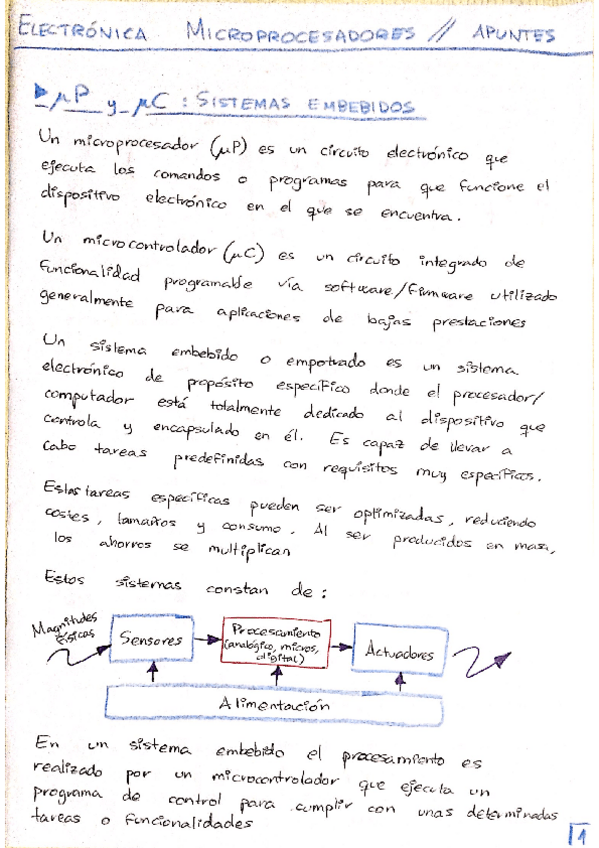 ELECTRÓNICA MICROPROCESADORES // APUNTES
μP y μC : SISTEMAS EMBEBIDOS
Un microprocesador (μP) es un circuito electrónico que
ejecuta los comandos o programas para que funcione el
dispositivo electrónico en el que se encuentra.
Un microcontrolador (μC) es un circuito integrado de
funcionalidad programable vía software/firmware utilizado
generalmente para aplicaciones de bajas prestaciones
Un sistema embebido o empotrado es un sistema
electrónico de propósito específico donde el procesador/
computador está totalmente dedicado al dispositivo que
controla y encapsulado en él. Es capaz de llevar a
cabo tareas predefinidas con requisitos muy específicos.
Estas tareas específicas pueden ser optimizadas, reduciendo
costes, tamaños y consumo. Al ser producidos en masa,
los ahorros se multiplican
Estos sistemas constan de :
Magnitudes
físicas
Sensores
Procesamiento
(analógico, micros,
digital)
Actuadores
Alimentación
En un sistema embebido el procesamiento es
realizado por un microcontrolador que ejecuta un
programa de control para cumplir con unas determinadas
tareas o funcionalidades
1